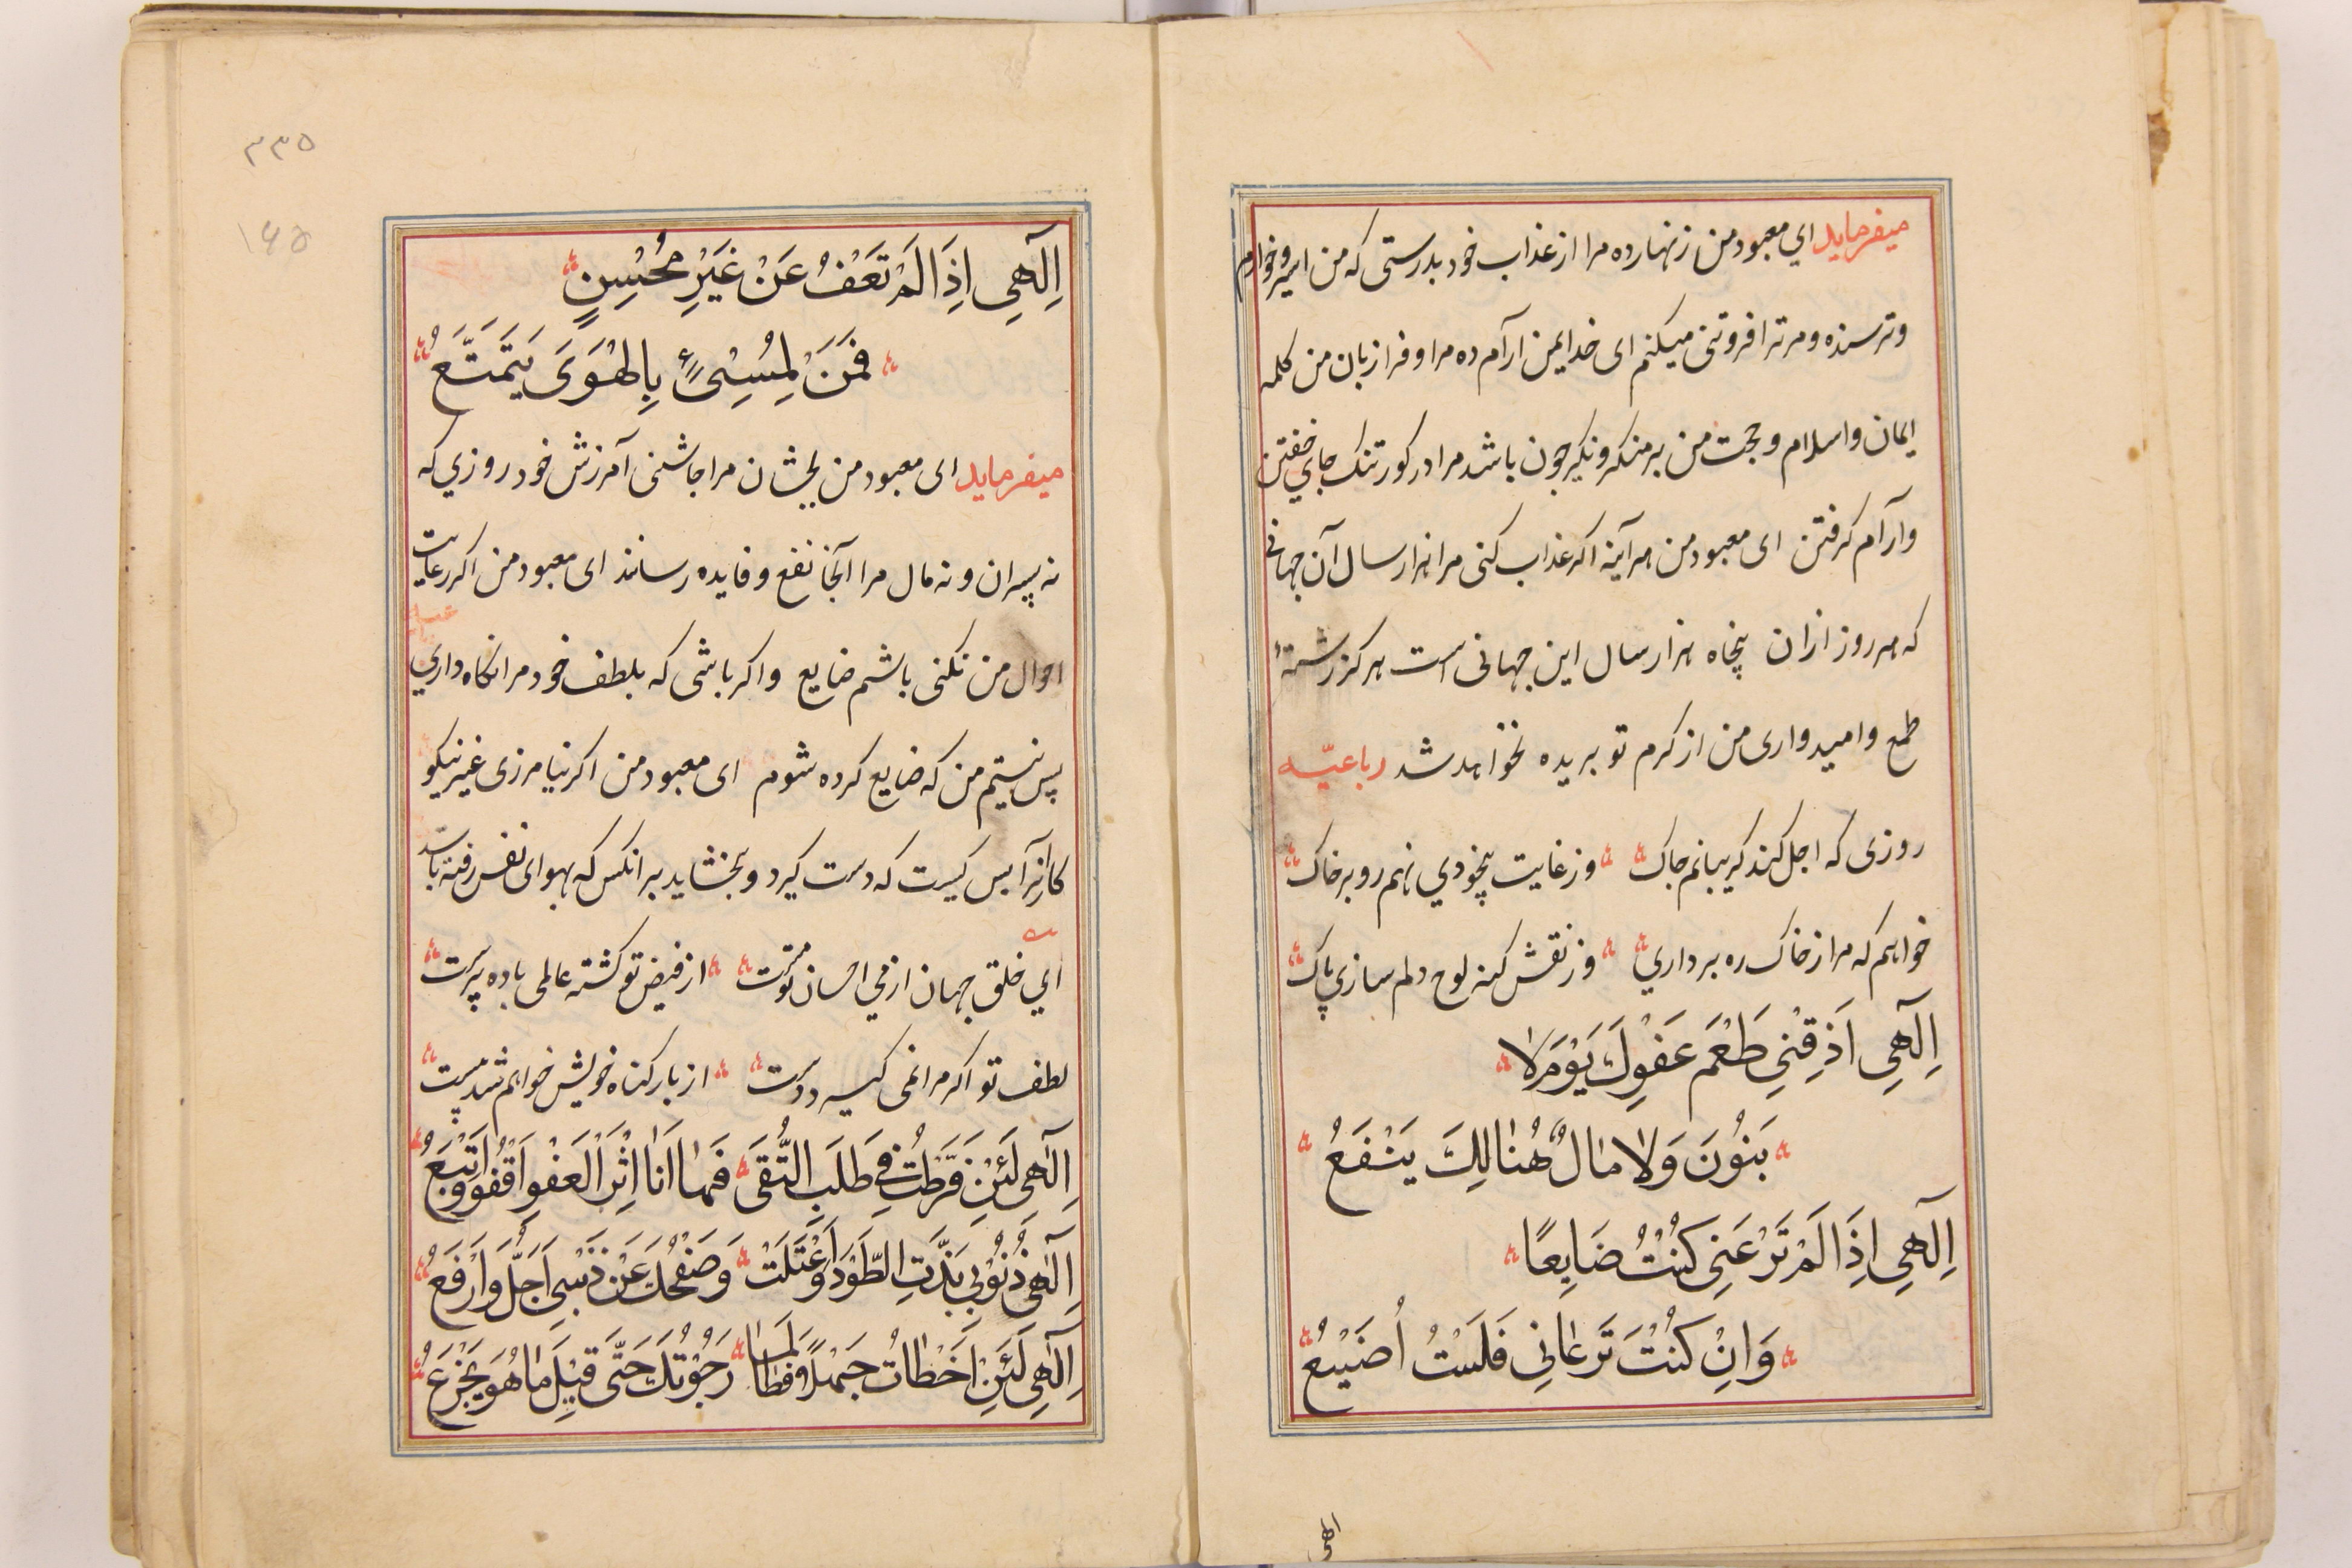 میفرماید ای معبود من زنهار ده مرا از عذاب خود بدرستی که من اسیر و خوارم
و ترسنده و مر ترا فروتنی میکنم ای خدا یمن آرام ده مرا و فرا زبان من کلمه
ایمان و اسلام و حجت من بر منکر و نکیر چون باشد مرا در کور تنک جای خفتن
و آرام کرفتن ای معبود من هر آینه اکر عذاب کنی مرا هزار سال آن جهانی
که هر روز ازان پنجاه هزار سال این جهانی است هرکز رشتهٔ
طمع و امیدواری من از کرم تو بریده نخواهد شد رباعیّه
روزی که اجل کند کریبانم چاک وز غایت بیخودی نهم رو بر خاک
خواهم که مرا ز خاک ره برداری وز نقش کنه لوح دلم سازی پاک
اِلٰهِی اَذِقْنِی طَعْمَ عَفْوِكَ یَوْمَ لَا
بَنُوْنَ وَلَا مَالٌ هُنَالِكَ یَنْفَعُ
اِلٰهِی اِذَا لَمْ تَرْعَنِی كُنْتُ ضَایِعًا
وَاِنْ كُنْتَ تَرْعَانِی فَلَسْتُ اُضَیَّعُ
الهی
٣٣٥
١٤٥
اِلٰهِی اِذَا لَمْ تَعْفُ عَنْ غَیْرِ مُحْسِنٍ
فَمَنْ لِمُسِیْءٍ بِالْهَوَی یَتَمَتَّعُ
میفرماید ای معبود من بچشان مرا چاشنی آمرزش خود روزی که
نه پسران و نه مال مرا آنجا نفع و فایده رسانند ای معبود من اکر رعایت
احوال من نکنی باشم ضایع و اکر باشی که بلطف خود مرا نکاه داری
پس نیستم من که ضایع کرده شوم ای معبود من اکر نیامرزی غیر نیکو
کارانرا پس کیست که دست کیرد و بخشاید بر انکس که بهوای نفس رفته باشد
ای خلق جهان از می احسان تو مست از فیض تو کشته عالمی باده پرست
لطف تو اکر مرا نمی کیرد دست از بار کناه خویش خواهم شد پست
اِلٰهِی لَئِنْ فَرَّطْتُ فِی طَلَبِ التُّقَی فَهَا اَنَا اِثْرَ الْعَفْوِ اَقْفُوْ وَاَتْبَعُ
اِلٰهِی ذُنُوْبِی بَذَّتِ الطَّوْدَ وَاعْتَلَتْ وَصَفْحُكَ عَنْ ذَنْبِی اَجَلُّ وَاَرْفَعُ
اِلٰهِی لَئِنْ اَخْطَاْتُ جَهْلًا فَطَالَمَا رَجَوْتُكَ حَتَّی قِیْلَ مَا هُوَ یَجْزَعُ